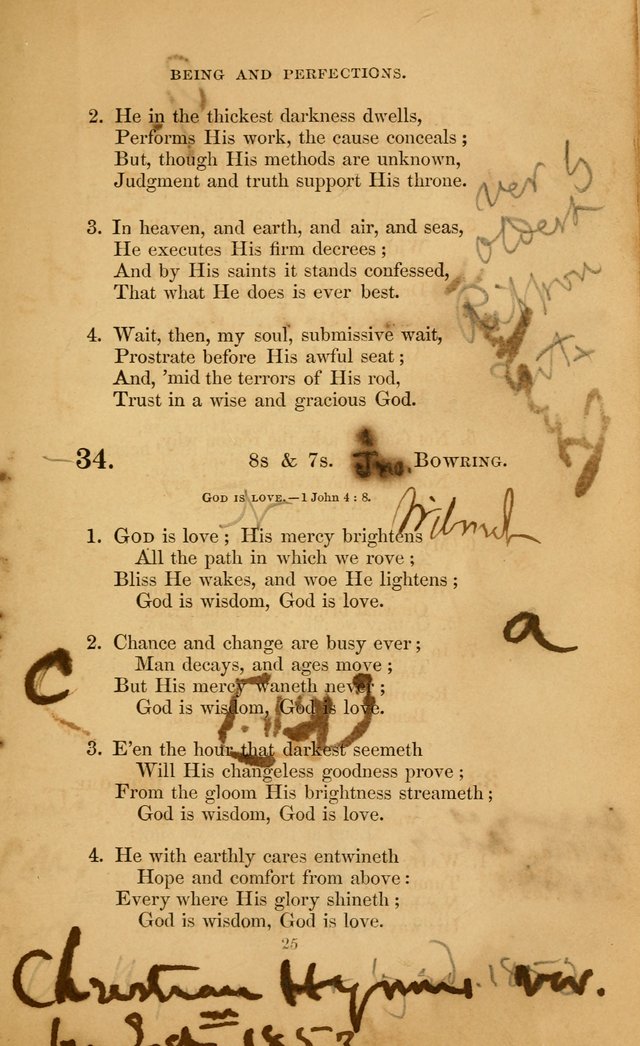 BEING AND PERFECTIONS.
2. He in the thickest darkness dwells,
Performs His work, the cause conceals;
But, though His methods are unknown,
Judgment and truth support His throne.
3. In heaven, and earth, and air, and seas,
He executes His firm decrees;
And by His saints it stands confessed,
That what He does is ever best.
4. Wait, then, my soul, submissive wait,
Prostrate before His awful seat;
And, 'mid the terrors of His rod,
Trust in a wise and gracious God.
ver
oldest
Rippon
34. 8s & 7s. Jno. BOWRING.
GOD IS LOVE.—1 John 4 : 8.
1. GOD is love; His mercy brightens
All the path in which we rove;
Bliss He wakes, and woe He lightens;
God is wisdom, God is love.
a
2. Chance and change are busy ever;
Man decays, and ages move;
But His mercy waneth never;
God is wisdom, God is love.
C
3. E'en the hour that darkest seemeth
Will His changeless goodness prove;
From the gloom His brightness streameth;
God is wisdom, God is love.
4. He with earthly cares entwineth
Hope and comfort from above:
Every where His glory shineth;
God is wisdom, God is love.
25
Christian Hymns ver.
1853